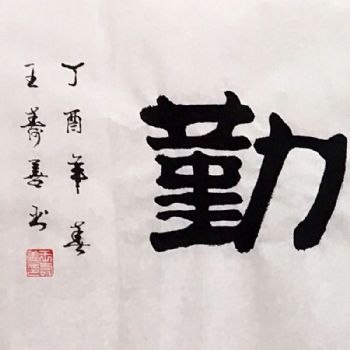 勤
丁酉年春
王寿善书